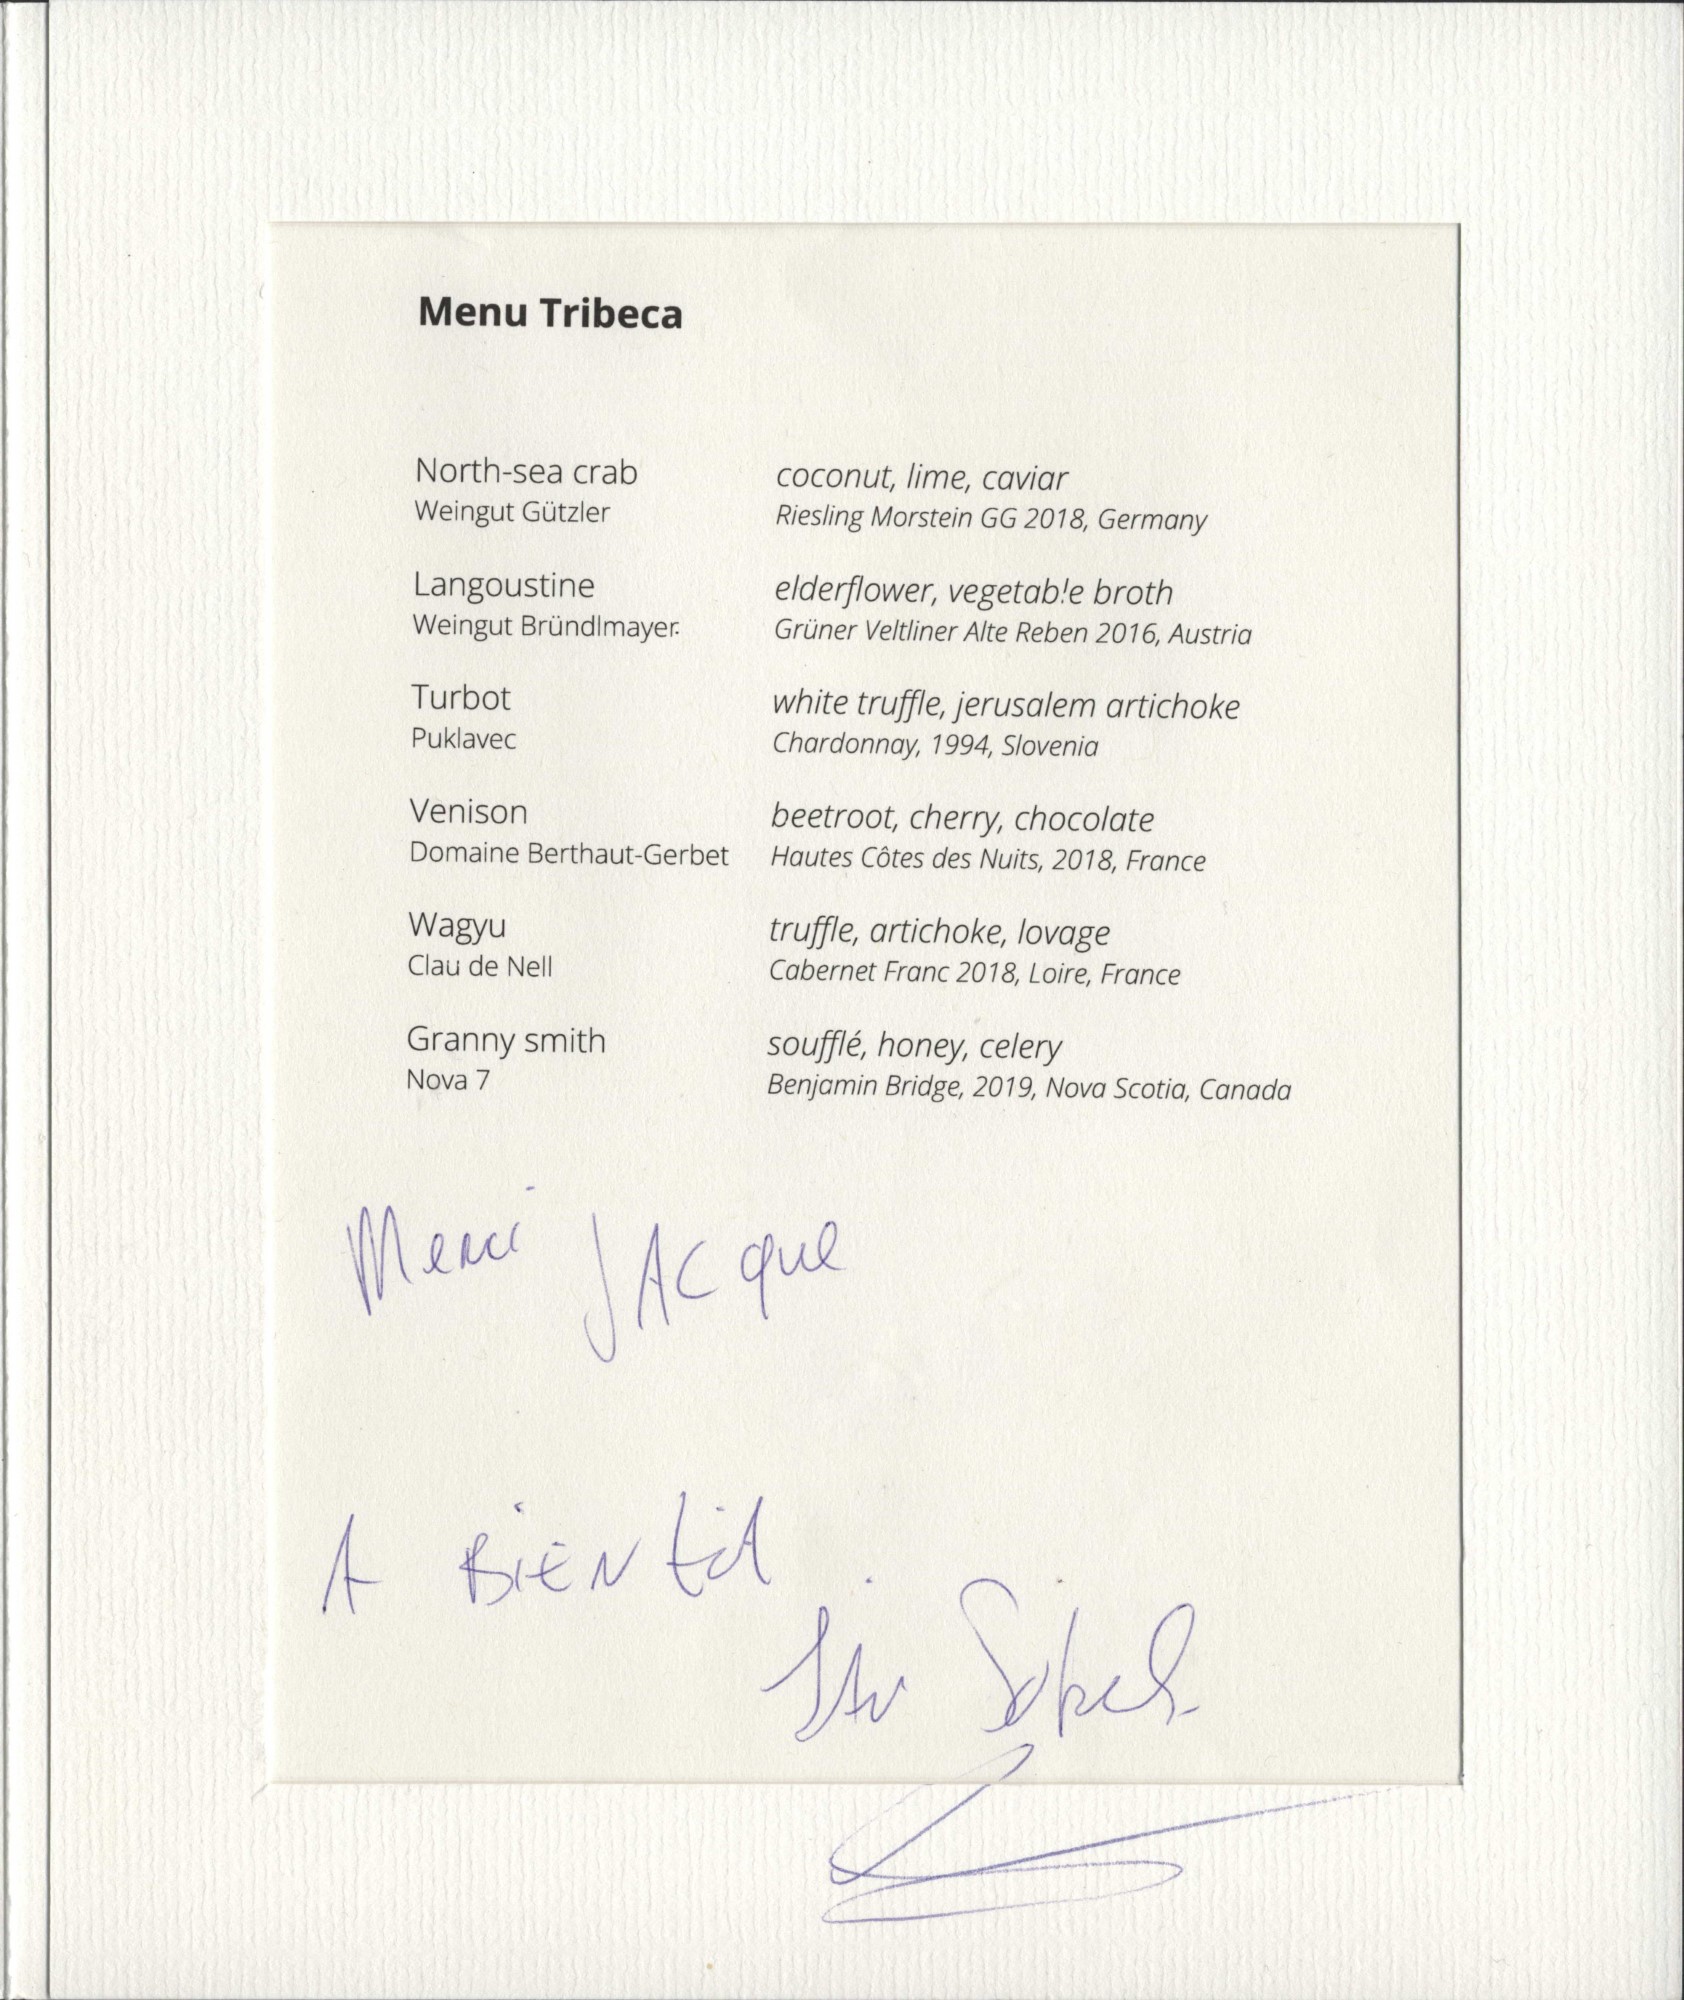 Menu Tribeca
North-sea crab coconut, lime, caviar
Weingut Gützler Riesling Morstein GG 2018, Germany
Langoustine elderflower, vegetable broth
Weingut Bründlmayer Grüner Veltliner Alte Reben 2016, Austria
Turbot white truffle, jerusalem artichoke
Puklavec Chardonnay, 1994, Slovenia
Venison beetroot, cherry, chocolate
Domaine Berthaut-Gerbet Hautes Côtes des Nuits, 2018, France
Wagyu truffle, artichoke, lovage
Clau de Nell Cabernet Franc 2018, Loire, France
Granny smith soufflé, honey, celery
Nova 7 Benjamin Bridge, 2019, Nova Scotia, Canada
Merci JACque
A BiEN